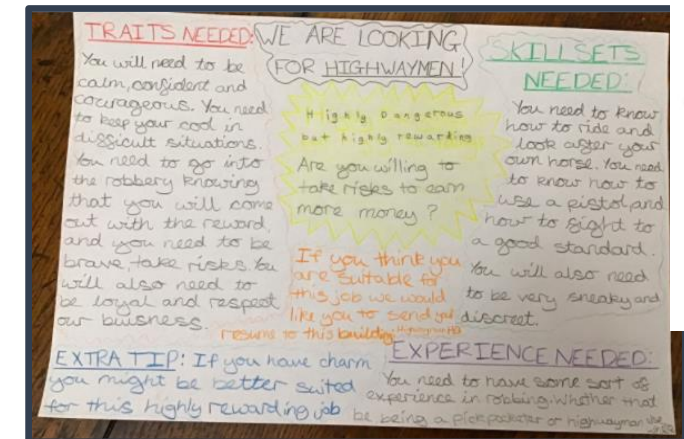 TRAITS NEEDED:
You will need to be
calm, confident and
courageous. You need
to keep your cool in
difficult situations.
You need to go into
the robbery knowing
that you will come
out with the reward,
and you need to be
brave, take risks. You
will also need to
be loyal and respect
our buisness.
WE ARE LOOKING
FOR HIGHWAYMEN!
Highly Dangerous
but highly rewarding
Are you willing to
take risks to earn
more money?
If you think you
are suitable for
this job we would
like you to send your
resume to this building
SKILLSETS
NEEDED:
You need to know
how to ride and
look after your
own horse. You need
to know how to
use a pistol, and
how to fight to
a good standard.
You will also need
to be very sneaky and
discreet.
EXTRA TIP: If you have charm
you might be better suited
for this highly rewarding job
EXPERIENCE NEEDED:
You need to have some sort of
experience in robbing. Whether that
be being a pickpocketer or highwayman